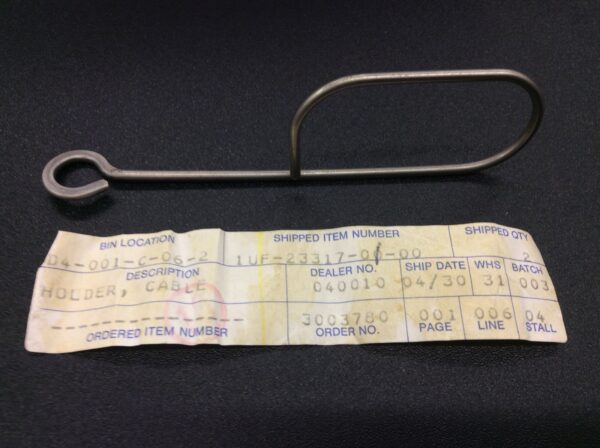 BIN LOCATION SHIPPED ITEM NUMBER SHIPPED QTY
D4-001-C-06-2 1UF-23317-01-00 2
DESCRIPTION DEALER NO. SHIP DATE WHS BATCH
HOLDER, CABLE 040010 04/30 31 003
3003780 001 006 04
ORDERED ITEM NUMBER ORDER NO. PAGE LINE STALL